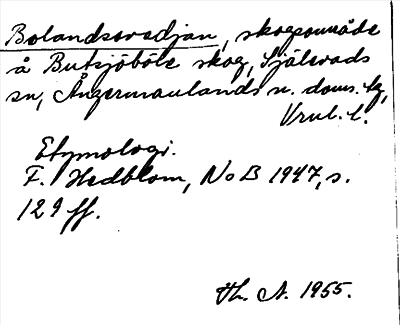 Bolandsoredjan, skogsområde
å Butsjöböle skog, Själevads
sn, Ångermanlands n. doms. lg,
Vrnl. l.
Etymologi.
F. Hedblom, NoB 1947, s.
129 ff.
Th. A. 1955.